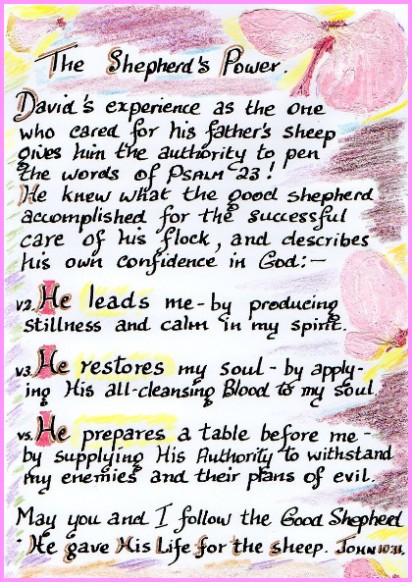 The Shepherd's Power.
David's experience as the one
who cared for his father's sheep
gives him the authority to pen
the words of PSALM 23!
He knew what the good shepherd
accomplished for the successful
care of his flock, and describes
his own confidence in God:-
v2. He leads me - by producing
stillness and calm in my spirit.
v3. He restores my soul - by apply-
ing His all-cleansing Blood to my soul.
v5. He prepares a table before me -
by supplying His Authority to withstand
my enemies and their plans of evil.
May you and I follow the Good Shepherd
He gave His Life for the sheep.